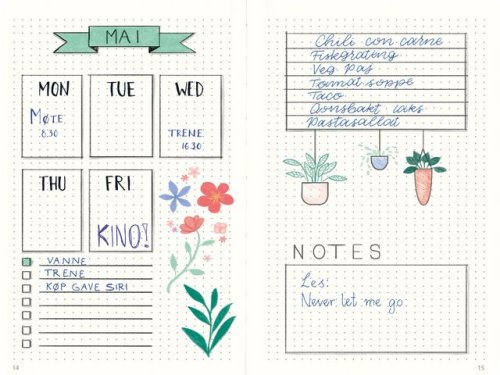 MAI
MON
TUE
WED
MØTE
8.30
TRENE
16.30
THU
FRI
KINO!
VANNE
TRENE
KØP GAVE SIRI
14
Chili con carne
Fiskegrateng
Veg Pas
Tomat soppe
Taco
Ovnsbakt laks
Pastasallat
NOTES
Les:
Never let me go:
15